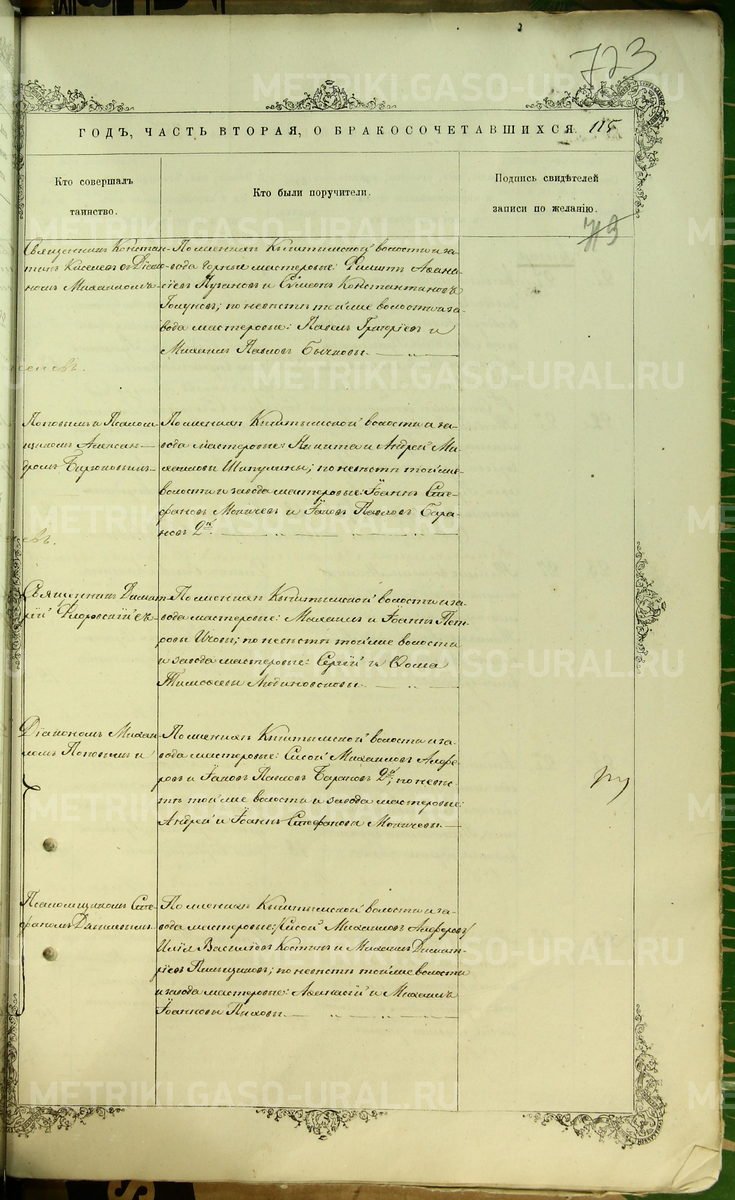 723
ГОДЪ, ЧАСТЬ ВТОРАЯ, О БРАКОСОЧЕТАВШИХСЯ. 115
Кто совершалъ
таинство.
Кто были поручители.
Подпись свидѣтелей
записи по желанію.
Священникъ Констан-
тинъ Киселевъ съ Діако-
номъ Михаиломъ
По женихѣ Кыштымской волости и за-
вода горные мастеровые: Филиппъ Аѳана-
сіевъ Пузановъ и Сумеонъ Константиновъ
Голуновъ; по невѣстѣ той же волости и за-
вода мастеровые: Павелъ Григоріевъ и
Михаилъ Павловъ Бычковы.
Поповымъ и Псалом-
щикомъ Алексан-
дромъ Бирюковымъ
По женихѣ Кыштымской волости и за-
вода мастеровые: Никита и Андрей Ми-
хаиловы Шипулины; по невѣстѣ той же
волости и завода мастеровые: Іоаннъ Сте-
фановъ Мокичевъ и Іаковъ Павловъ Бара-
новъ 2й.
Священникъ Димит-
рій Флоровскій съ
По женихѣ Кыштымской волости и за-
вода мастеровые: Михаилъ и Іоаннъ Пет-
ровы Ичевы; по невѣстѣ той же волости
и завода мастеровые: Сергій и Ѳома
Тимоѳеевы
Діакономъ Михаи-
ломъ Поповымъ и
По женихѣ Кыштымской волости и за-
вода мастеровые: Сисой Михаиловъ Алфе-
ровъ и Іаковъ Павловъ Барановъ 2й; по невѣс-
тѣ той же волости и завода мастеровые:
Андрей и Іоаннъ Стефановы Мокичевы
Псаломщикомъ Сте-
фаномъ
По женихѣ Кыштымской волости и за-
вода мастеровые: Сисой Михаиловъ Алферовъ,
Илія Васильевъ Костинъ и Михаилъ Димит-
ріевъ; по невѣстѣ той же волости
и завода мастеровые: Аѳанасій и Михаилъ
Іоанновы Пиховы
METRIKI.GASO-URAL.RU